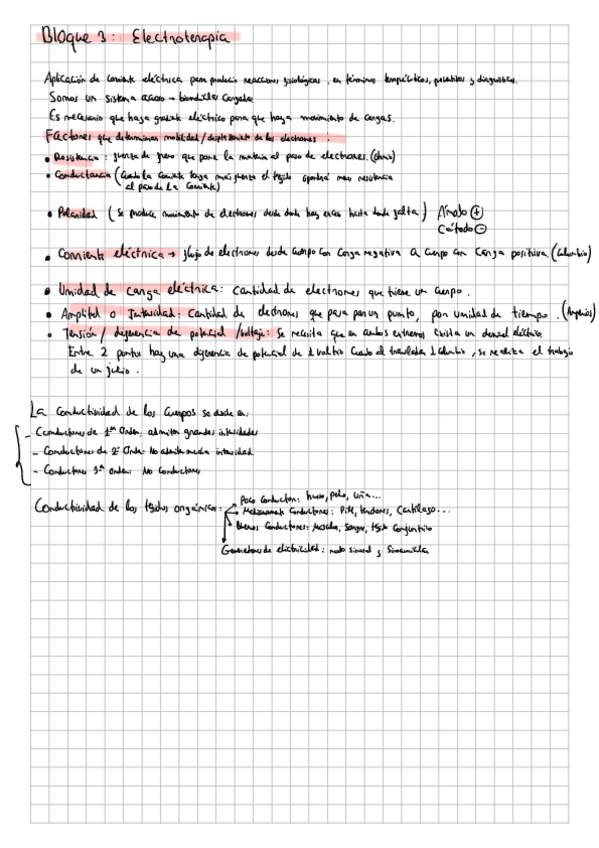 Bloque 3: Electroterapia
Aplicación de corriente eléctrica para producir reacciones fisiológicas, en términos terapéuticos, y diagnósticos.
Somos un sistema acuoso → cargadas
Es necesario que haya gradiente eléctrico para que haya movimiento de cargas.
Factores que determinan movilidad/desplazamiento de los electrones:
• Resistencia: fuerza de freno que pone la materia al paso de electrones. (ohmio)
• Conductancia (Cuando la corriente tenga más fuerza el tejido opondrá más resistencia
al paso de la corriente)
• Polaridad (Se produce movimiento de electrones desde donde hay exceso hasta donde falta) Ánodo ⊕
Cátodo ⊖
• Corriente eléctrica → flujo de electrones desde cuerpo con carga negativa a cuerpo con carga positiva (Culombio)
• Unidad de carga eléctrica: Cantidad de electrones que tiene un cuerpo.
• Amplitud o Intensidad: Cantidad de electrones que pasa por un punto, por unidad de tiempo. (Amperios)
• Tensión / diferencia de potencial / voltaje: Se necesita que en ambos extremos exista un desnivel eléctrico
Entre 2 puntos hay una diferencia de potencial de 1 voltio cuando al trasladar 1 culombio, se realiza el trabajo
de un julio.
La conductividad de los cuerpos se da en:
- Conductores de 1er orden: admiten grandes intensidades
- Conductores de 2º orden: No admite media intensidad
- Conductores 3er orden: No conductores
Conductividad de los tejidos orgánicos: Poco conductores: hueso, pelo, uña...
Medianamente conductores: Piel, tendones, cartílago...
Buenos conductores: Músculo, sangre, tejido conjuntivo
Generadores de electricidad: nodo sinusal y